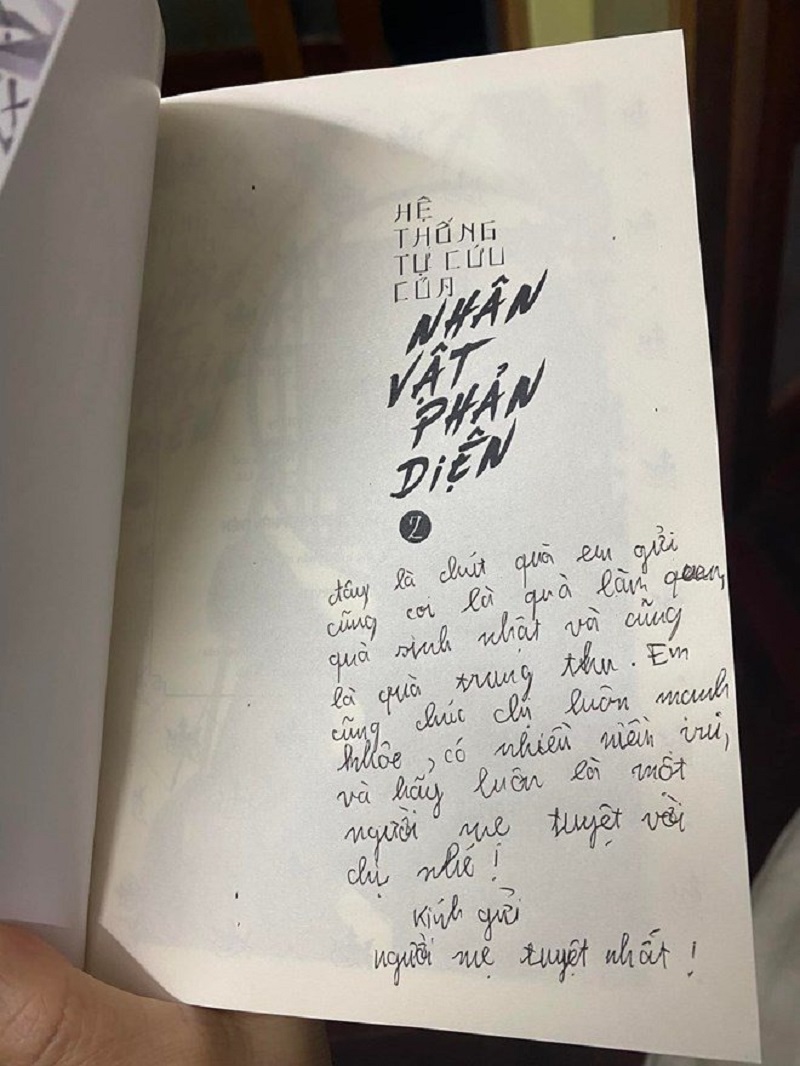 HỆ
THỐNG
TỰ CỨU
CỦA
NHÂN
VẬT
PHẢN
DIỆN
2
đây là chút quà em gửi
cũng coi là quà làm quen,
quà sinh nhật và cũng
là quà trung thu. Em
cũng chúc chị luôn mạnh
khỏe, có nhiều niềm vui,
và hãy luôn là một
người mẹ tuyệt vời
chị nhé!
Kính gửi
người mẹ tuyệt nhất!